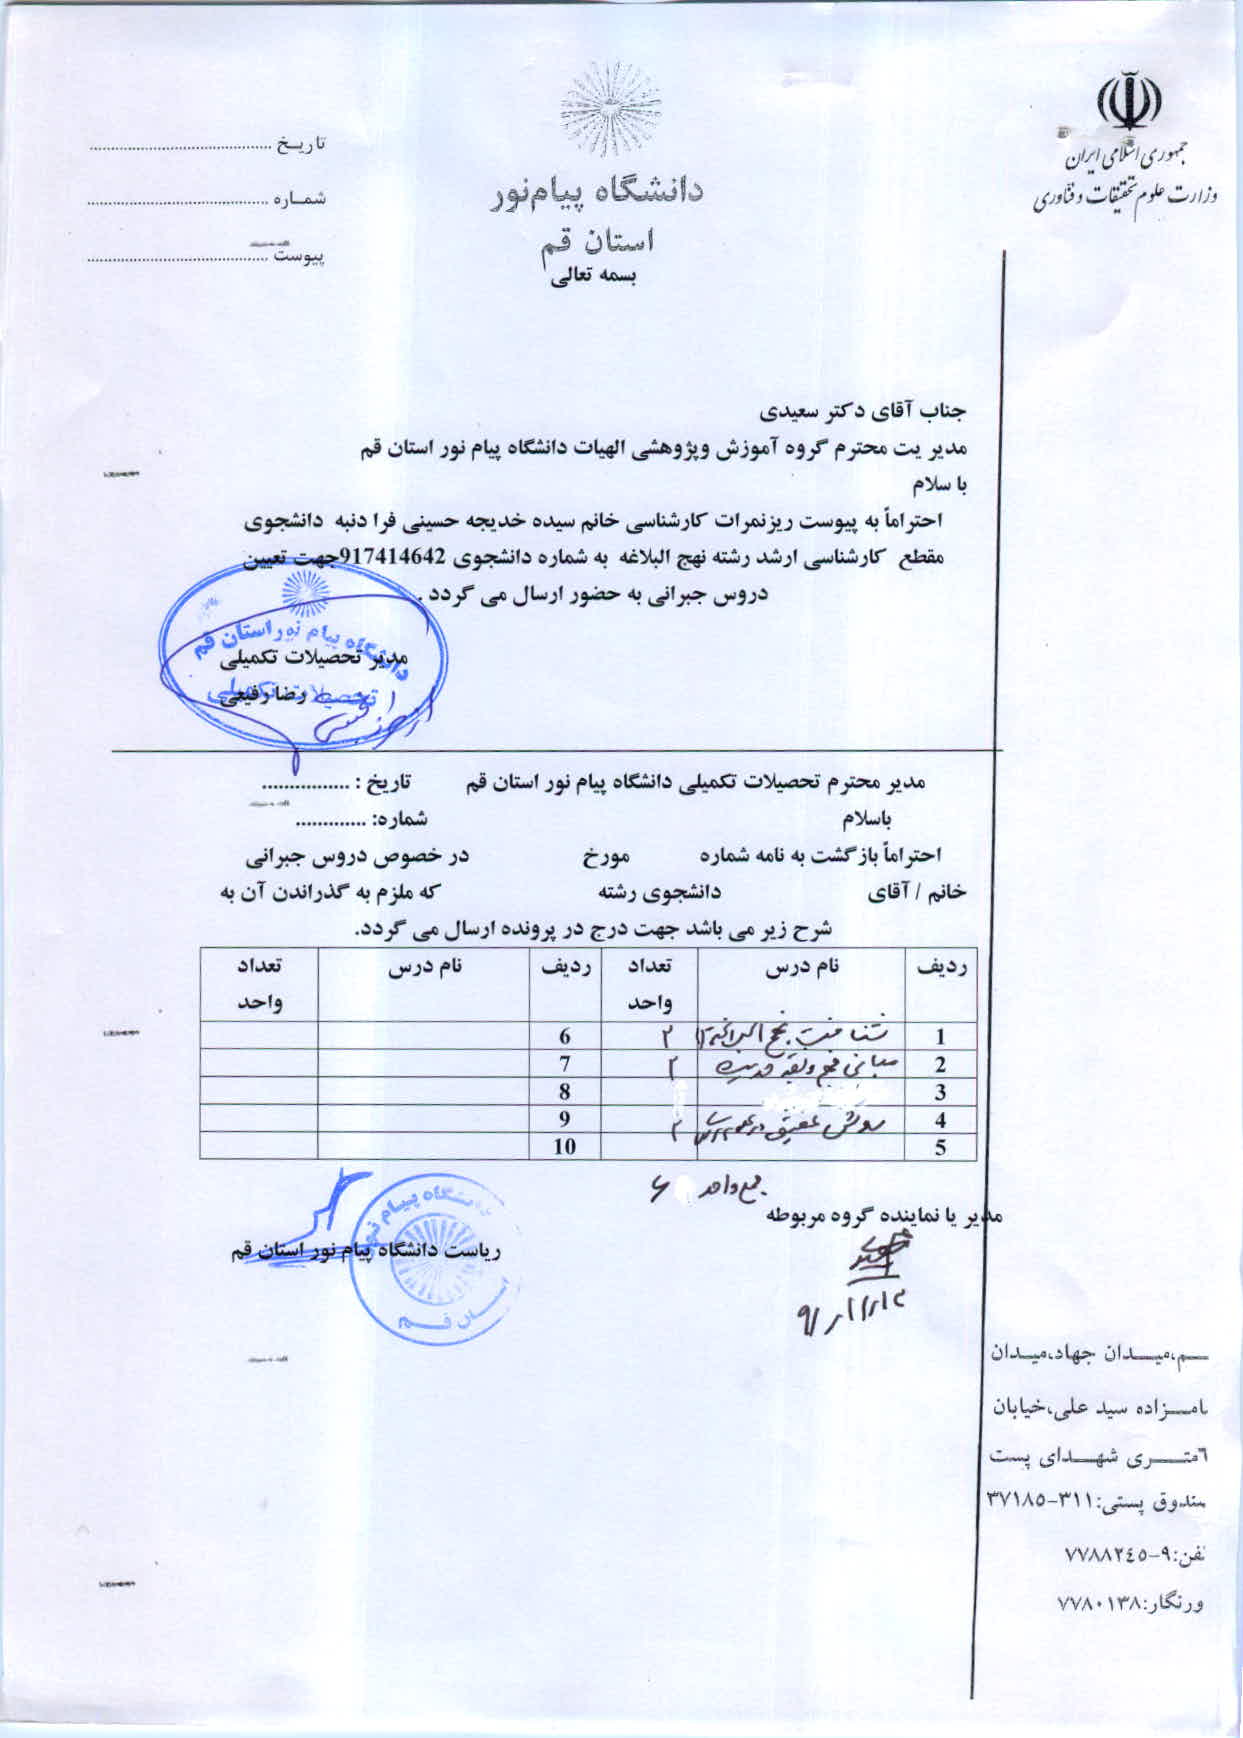 جمهوری اسلامی ایران
وزارت علوم تحقیقات و فناوری
دانشگاه پیام‌نور
استان قم
بسمه تعالی
تاریـخ ........................................
شمـاره ........................................
پیوست ........................................
جناب آقای دکتر سعیدی
مدیر یت محترم گروه آموزش وپژوهشی الهیات دانشگاه پیام نور استان قم
با سلام
احتراماً به پیوست ریزنمرات کارشناسی خانم سیده خدیجه حسینی فرا دنبه دانشجوی
مقطع کارشناسی ارشد رشته نهج البلاغه به شماره دانشجوی 917414642جهت تعیین
دروس جبرانی به حضور ارسال می گردد .
دانشگاه پیام نور استان قم
مدیر تحصیلات تکمیلی
تحصیلات تکمیلی
رضا رفیعی
مدیر محترم تحصیلات تکمیلی دانشگاه پیام نور استان قم تاریخ : ................
باسلام شماره: .............
احتراماً بازگشت به نامه شماره مورخ در خصوص دروس جبرانی
خانم / آقای دانشجوی رشته که ملزم به گذراندن آن به
شرح زیر می باشد جهت درج در پرونده ارسال می گردد.
ردیف نام درس تعداد واحد ردیف نام درس تعداد واحد
1 شناخت نهج البلاغه ۲ 6
2 مبانی فهم و نقد حدیث ۲ 7
3 8
4 روش تحقیق در ۲ 9
5 10
جمع واحد ۶
مدیر یا نماینده گروه مربوطه
ریاست دانشگاه پیام نور استان قم
دانشگاه پیام نور
استان قم
ـم،میـدان جهاد،میـدان
امـزاده سید علی،خیابان
٦متـری شهـدای پست
ندوق پستی:۳۱۱-۳۷۱۸۵
فن:۹-۷۷۸۸۲٤۵
ورنگار:۷۷۸۰۱۳۸